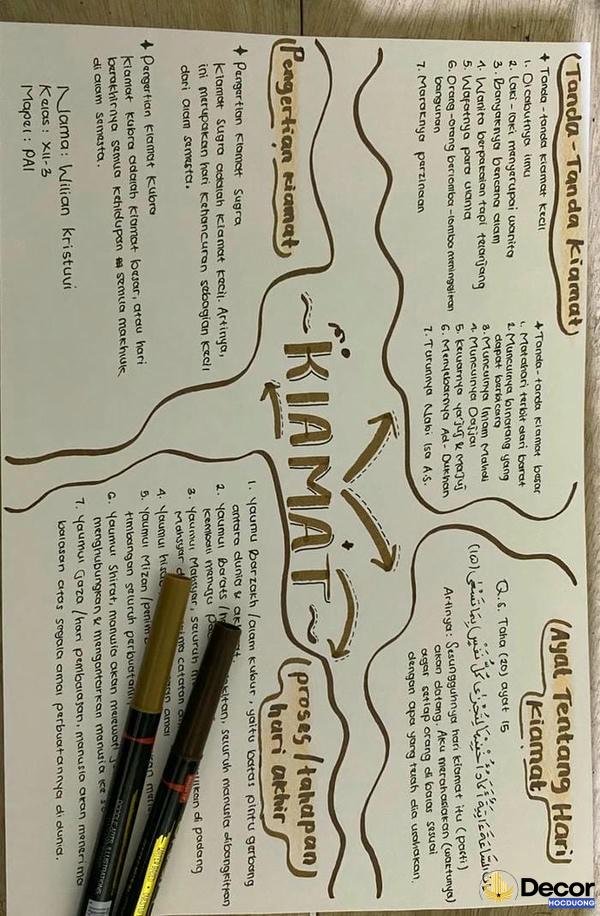 Tanda-Tanda Kiamat
Tanda-tanda kiamat kecil
1. Dicabutnya ilmu
2. Laki-laki menyerupai wanita
3. Banyaknya bencana alam
4. Wanita berpakaian tapi telanjang
5. Wafatnya para ulama
6. Orang-orang berlomba-lomba meninggikan
bangunan
7. Maraknya perzinaan
Tanda-tanda kiamat besar
1. Matahari terbit dari barat
2. Munculnya binatang yang
dapat berbicara
3. Munculnya Imam Mahdi
4. Munculnya Dajjal
5. Keluarnya ya'juj & ma'juj
6. Menyebarnya Ad-Dukhan
7. Turunnya Nabi Isa A.S.
Ayat Tentang Hari
Kiamat
Q.S. Taha (20) ayat 15
إِنَّ السَّاعَةَ ءَاتِيَةٌ أَكَادُ أُخْفِيهَا لِتُجْزَىٰ كُلُّ نَفْسٍ بِمَا تَسْعَىٰ (١٥)
Artinya: Sesungguhnya hari kiamat itu (pasti)
akan datang. Aku merahasiakan (waktunya)
agar setiap orang dibalas sesuai
dengan apa yang telah dia usahakan.
KIAMAT
Pengertian kiamat
Pengertian kiamat Sugra
Kiamat Sugra adalah kiamat kecil. Artinya,
ini merupakan hari kehancuran sebagian kecil
dari alam semesta.
Pengertian kiamat kubra
Kiamat kubra adalah kiamat besar, atau hari
berakhirnya semua kehidupan semua makhluk
di alam semesta.
Nama: Wilian Kristuvi
Kelas: XII-3
Mapel: PAI
proses/tahapan
hari akhir
1. Yaumu Barzakh/alam kubur, yaitu batas pintu gerbang
antara dunia &
2. Yaumul Ba'ats seluruh manusia dibangkitkan
kembali menuju
3. Yaumul Mahsyar, seluruh di padang
Mahsyar catatan
4. Yaumul
5. Yaumul Mizan
timbangan seluruh
6. Yaumul Shirat, manusia akan melewati
menghubungkan & mengantarkan manusia ke
7. Yaumul Jaza/hari pembalasan, manusia akan menerima
balasan atas segala amal perbuatannya di dunia.
Decor
HOCDUONG